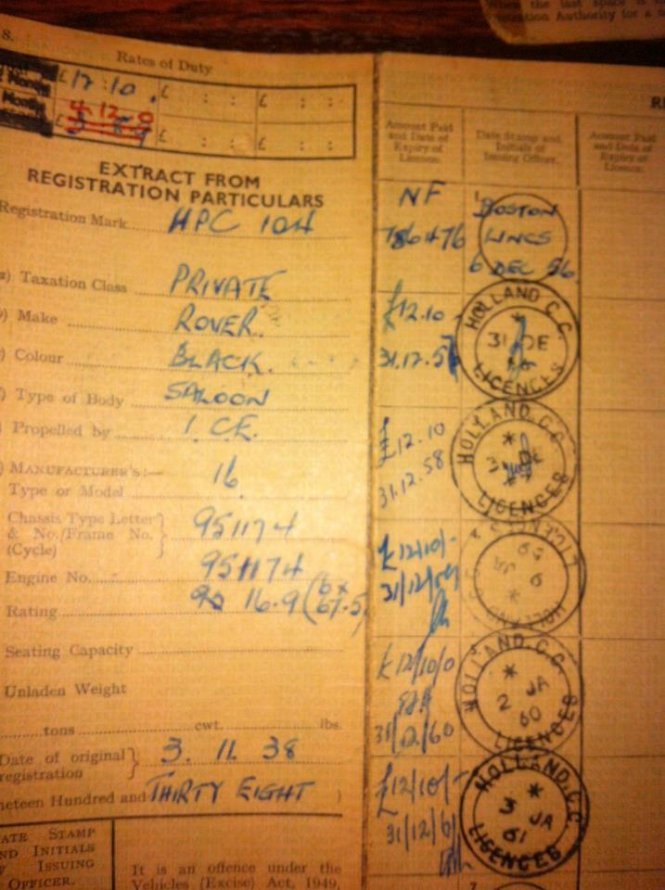 When the last space is
Authority for a
8.
Rates of Duty
Months
£17:10. £ : : £ : :
4.12.0
Months
£ £ : : £ : :
EXTRACT FROM
REGISTRATION PARTICULARS
Registration Mark HPC 104
) Taxation Class PRIVATE
) Make ROVER.
) Colour BLACK.
) Type of Body SALOON
) Propelled by I.C.E.
) MANUFACTURER'S:—
Type or Model 16
Chassis Type Letter
& No./Frame No. 951174
(Cycle)
Engine No. 951174
Rating 16.9 (6 x 67.5
Seating Capacity
Unladen Weight
tons cwt. lbs.
Date of original
registration 3. 11. 38
neteen Hundred and THIRTY EIGHT )
ATE STAMP
ND INITIALS
ISSUING
OFFICER.
It is an offence under the
Vehicles (Excise) Act, 1949,
R
Amount Paid
and Date of
Expiry of
Licence.
Date Stamp and
Initials of
Issuing Officer.
Amount Paid
and Date of
Expiry of
Licence.
NF
786476
BOSTON
LINCS
6 DEC 56
£12.10 -
31.12.57
HOLLAND C.C.
31 DE
LICENCES
£12.10
31.12.58
HOLLAND C.C.
DE
LICENCES
£12/10/-
31/12/59
HOLLAND C.C.
9 JA
59
LICENCES
£12/10/0
31/12/60
HOLLAND C.C.
2 JA
60
LICENCES
£12/10/-
31/12/61
HOLLAND C.C.
3 JA
61
LICENCES
7